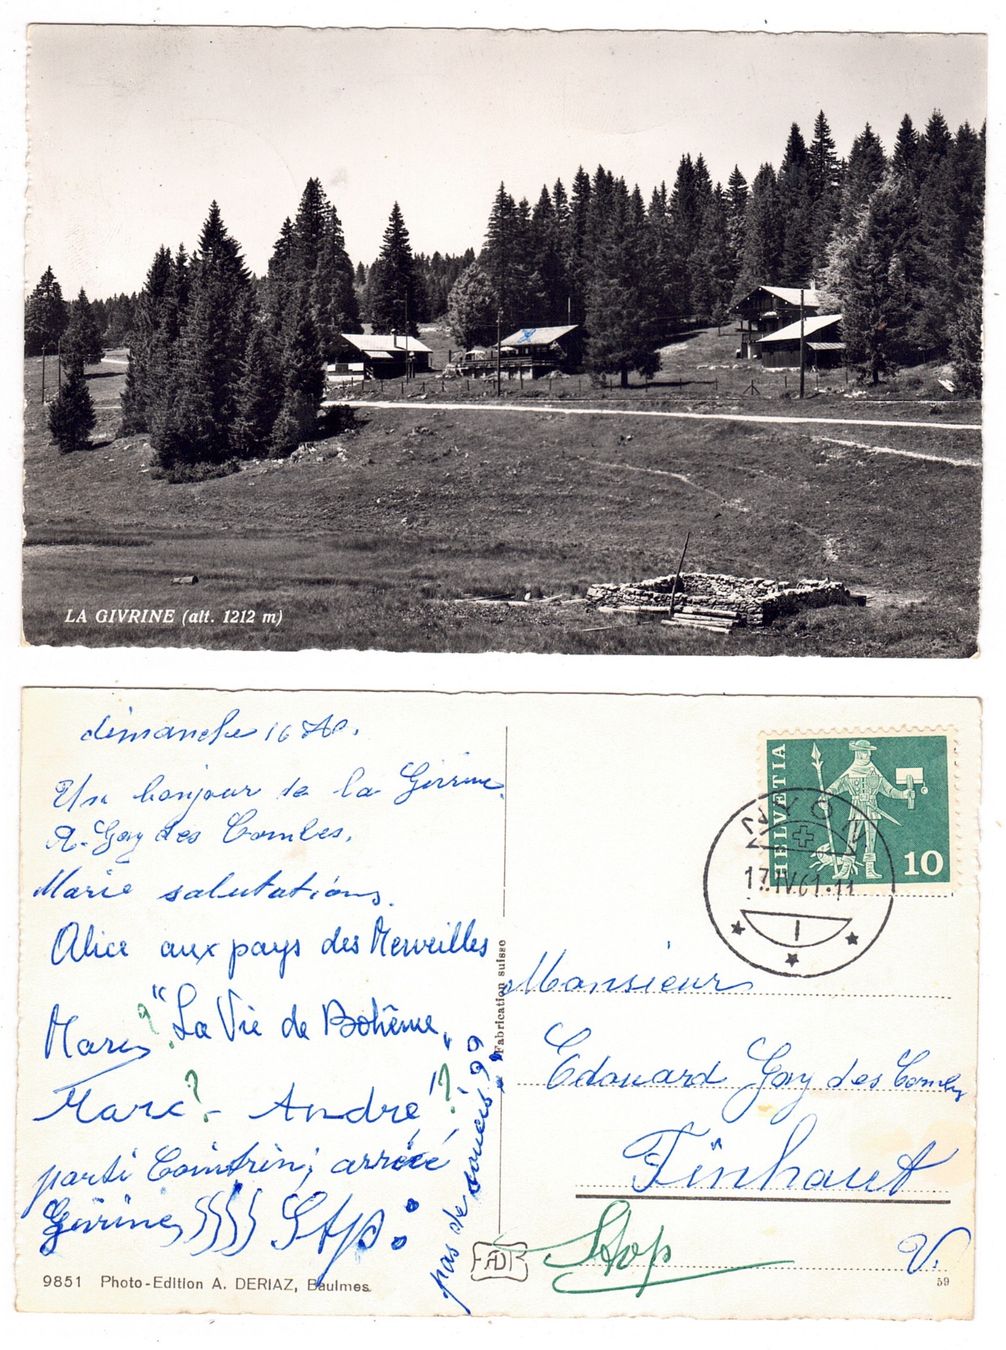 LA GIVRINE (alt. 1212 m)
dimanche 16
Un bonjour de la Givrine
R. Gay des Combes.
Marie salutations.
Alice aux pays des Merveilles
? "La Vie de Bohême"
Marc? - André!?
parti Cointrin; arrivé
Givrine Stop:
pas de soucis,
9851 Photo-Edition A. DERIAZ, Baulmes
Fabrication suisse
HELVETIA
10
NYON
17.IV.61-11
1
Monsieur
Edouard Gay des Combes
Finhaut
Stop
V.
59